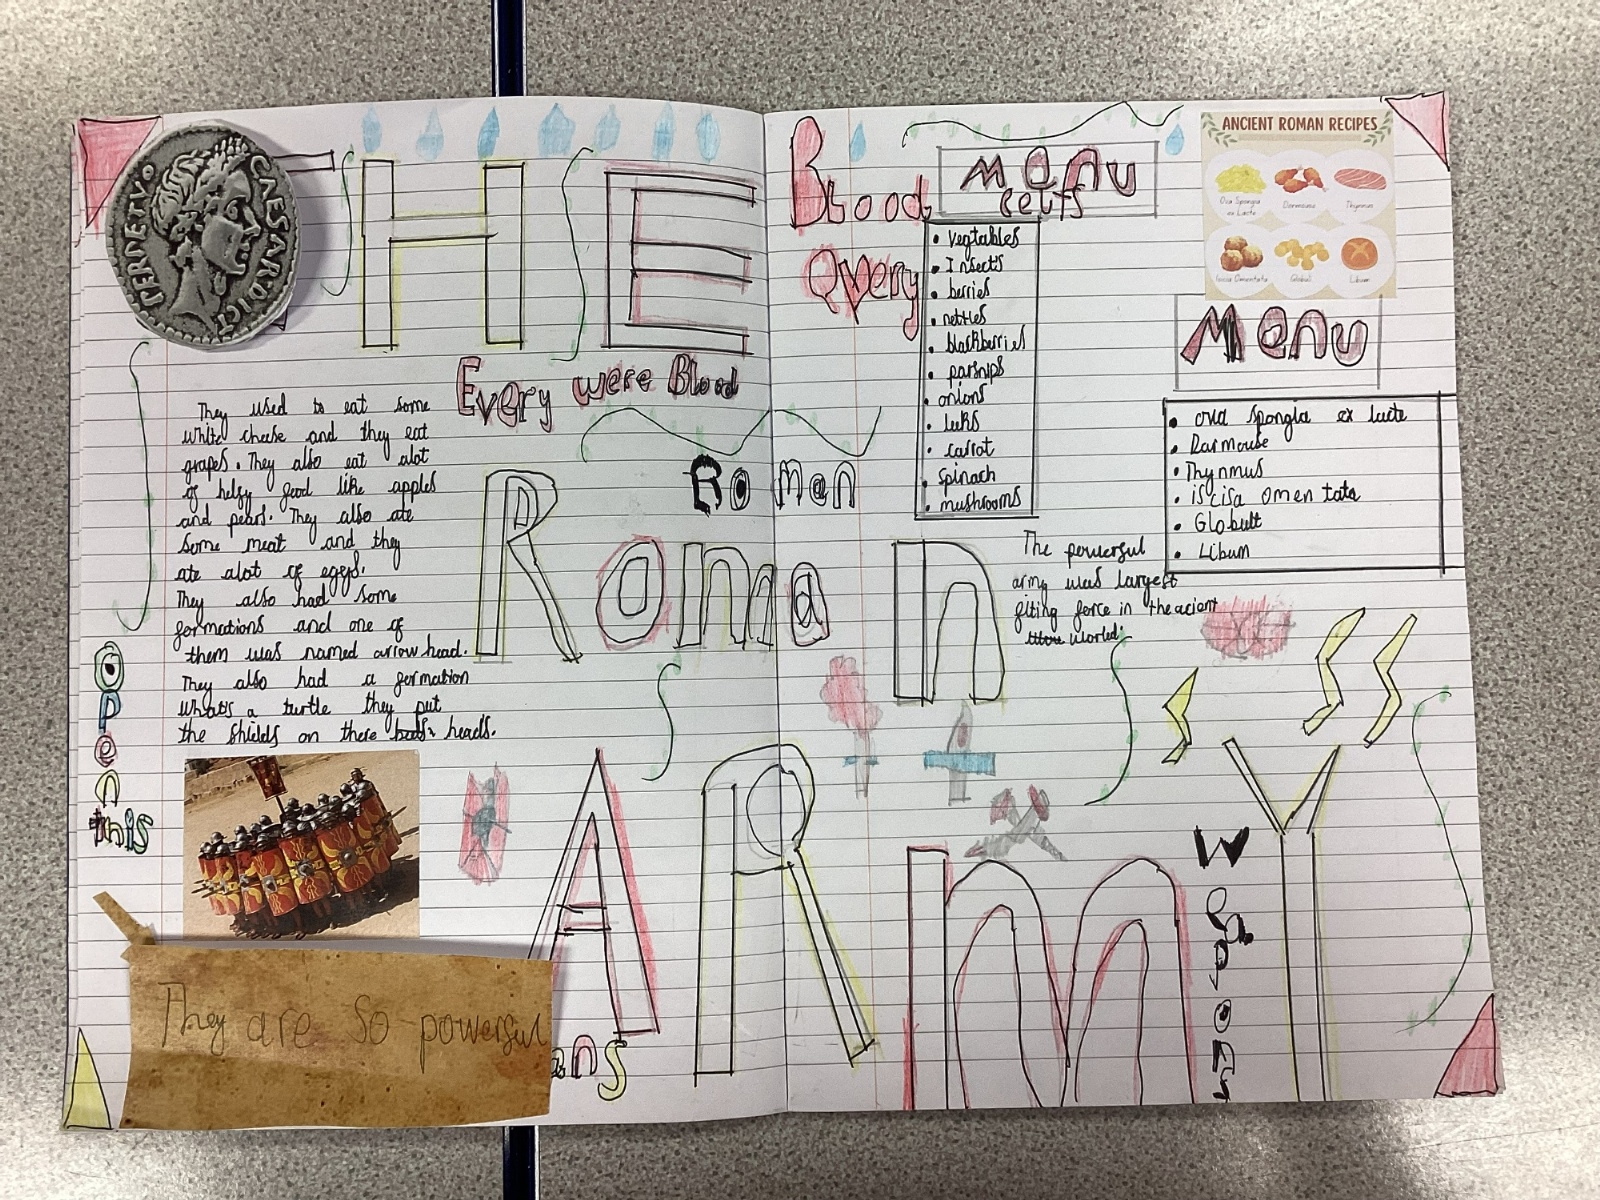 THE
PERPETVO CAESAR DICT
Every were Blood
They used to eat some
white cheese and they eat
grapes. They also eat alot
of helfy food like apples
and pears. They also ate
some meat and they
ate alot of eggs.
They also had some
formations and one of
them was named arrow head.
They also had a formation
whats a turtle they put
the shields on there heads.
Open
this
They are so powerful
ans
Roman
Roman
ARmY
Blood
Every
Menu
celts
• vegtables
• Insects
• berries
• nettles
• blackberries
• parsnips
• onions
• leeks
• carrot
• spinach
• mushrooms
ANCIENT ROMAN RECIPES
Ova Spongia
ex Lacte
Dormouse
Thynnus
Isicia Omentata
Globuli
Libum
Menu
• ova spongla ex lacte
• Darmouse
• Thynmus
• iscisa omen tata
• Globult
• Libum
The powerful
army was largest
fiting force in the acient
world.
Weapons